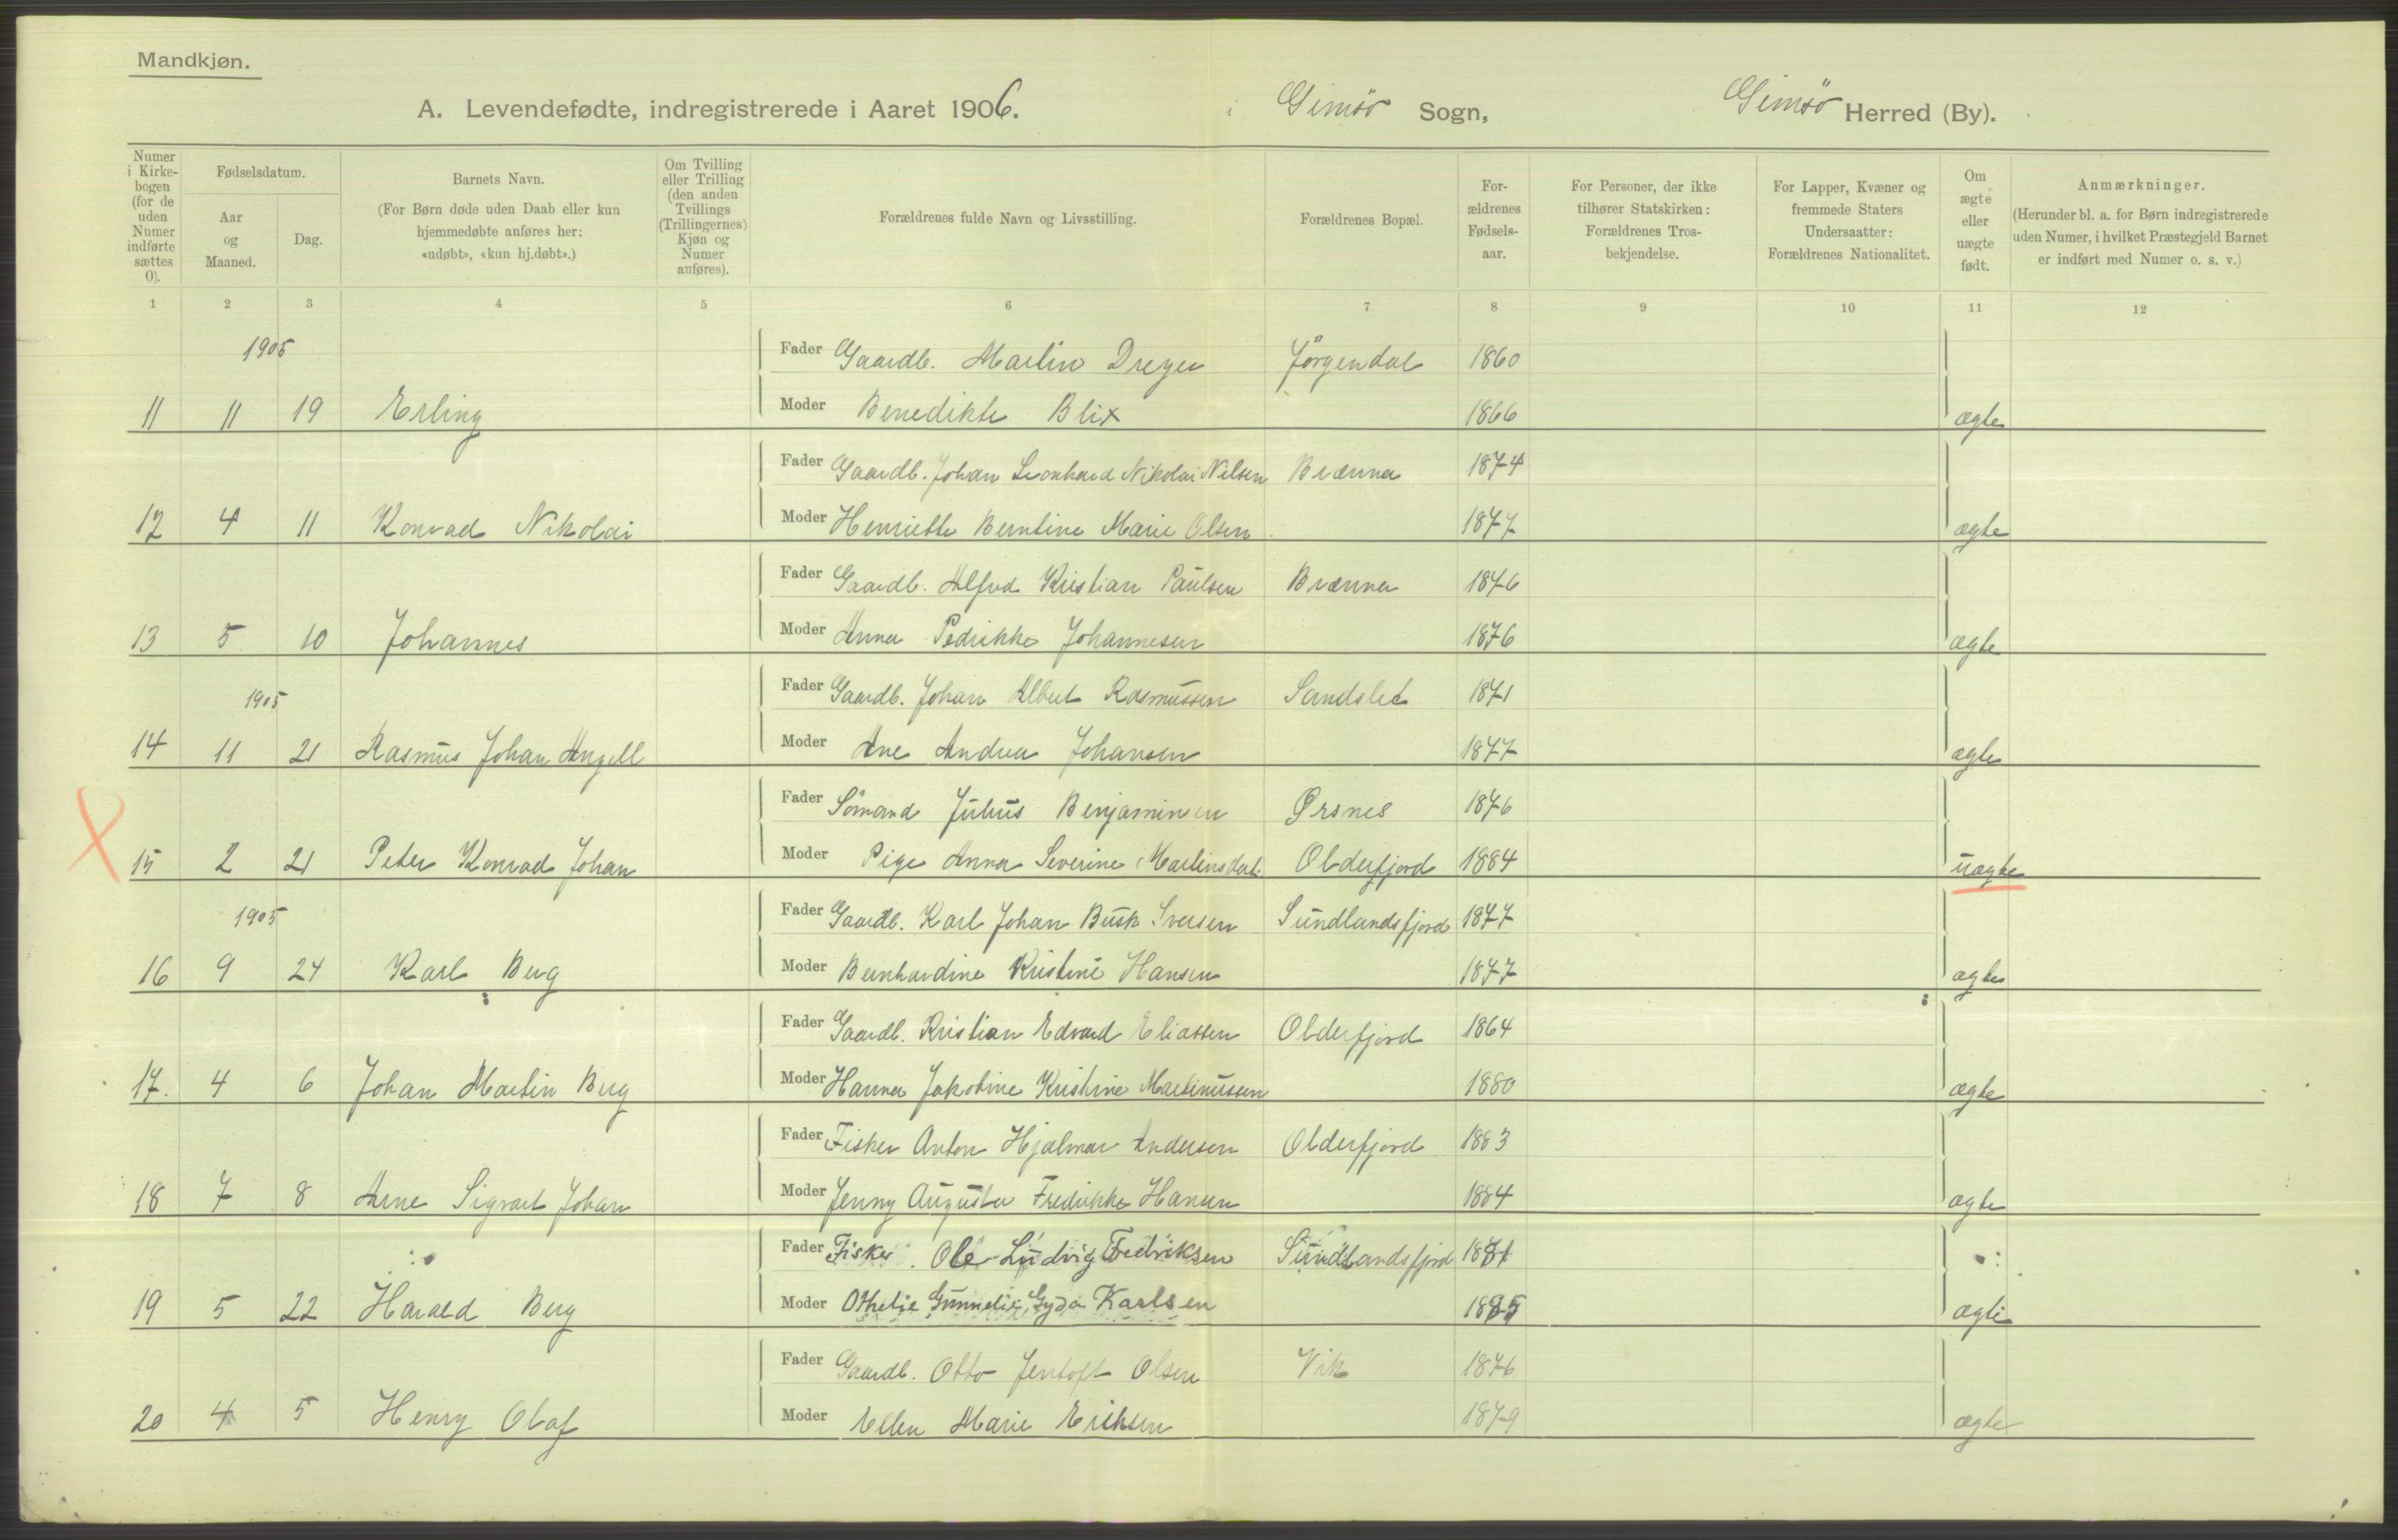 Mandkjøn.
A. Levendefødte, indregistrerede i Aaret 1906. i Gimsö Sogn, Gimsö Herred (By).
Numer i Kirkebogen (for de uden Numer indførte sættes 0). Fødselsdatum. Aar og Maaned. Dag. Barnets Navn. (For Børn døde uden Daab eller kun hjemmedøbte anføres her: «udøbt», «kun hj.døbt».) Om Tvilling eller Trilling (den anden Tvillings (Trillingernes) Kjøn og Numer anføres). Forældrenes fulde Navn og Livsstilling. Forældrenes Bopæl. Forældrenes Fødselsaar. For Personer, der ikke tilhører Statskirken: Forældrenes Trosbekjendelse. For Lapper, Kvæner og fremmede Staters Undersaatter: Forældrenes Nationalitet. Om ægte eller uægte født. Anmærkninger. (Herunder bl. a. for Børn indregistrerede uden Numer, i hvilket Præstegjeld Barnet er indført med Numer o. s. v.)
1 2 3 4 5 6 7 8 9 10 11 12
1905 Fader Gaardb. Martin Dreyer Jörgendal 1860
11 11 19 Erling Moder Benedikte Blix 1866 ægte
Fader Gaardb. Johan Leonhard Nikolai Nilsen Brænna 1874
12 4 11 Konrad Nikolai Moder Henriette Berntine Marie Olsen 1877 ægte
Fader Gaardb. Alfred Kristian Paulsen Brænna 1876
13 5 10 Johannes Moder Anna Pedrikke Johannesen 1876 ægte
1905 Fader Gaardb. Johan Albert Rasmussen Sandslet 1871
14 11 21 Rasmus Johan Angell Moder Ane Andrea Johansen 1877 ægte
Fader Sömand Julius Benjaminsen Ørsnes 1876
15 2 21 Peter Konrad Johan Moder Pige Anna Severine Martinsdat. Olderfjord 1884 uægte
1905 Fader Gaardb. Karl Johan Busk Iversen Sundlandsfjord 1877
16 9 24 Karl Berg Moder Bernhardine Kristine Hansen 1877 ægte
Fader Gaardb. Kristian Edvard Eliassen Olderfjord 1864
17. 4 6 Johan Martin Berg Moder Hanna Jakobine Kristine Martinussen 1880 ægte
Fader Fisker Anton Hjalmar Andersen Olderfjord 1883
18 7 8 Arne Sigvart Johan Moder Jenny Augusta Fredrikke Hansen 1884 ægte
Fader Fisker Ole Ludvig Fredriksen Sundlandsfjord 1881
19 5 22 Harald Berg Moder Othelie Gunnelie Gyda Karlsen 1885 ægte
Fader Gaardb. Otto Jentoft Olsen Vik 1876
20 4 5 Henry Olaf Moder Ellen Marie Eriksen 1879 ægte